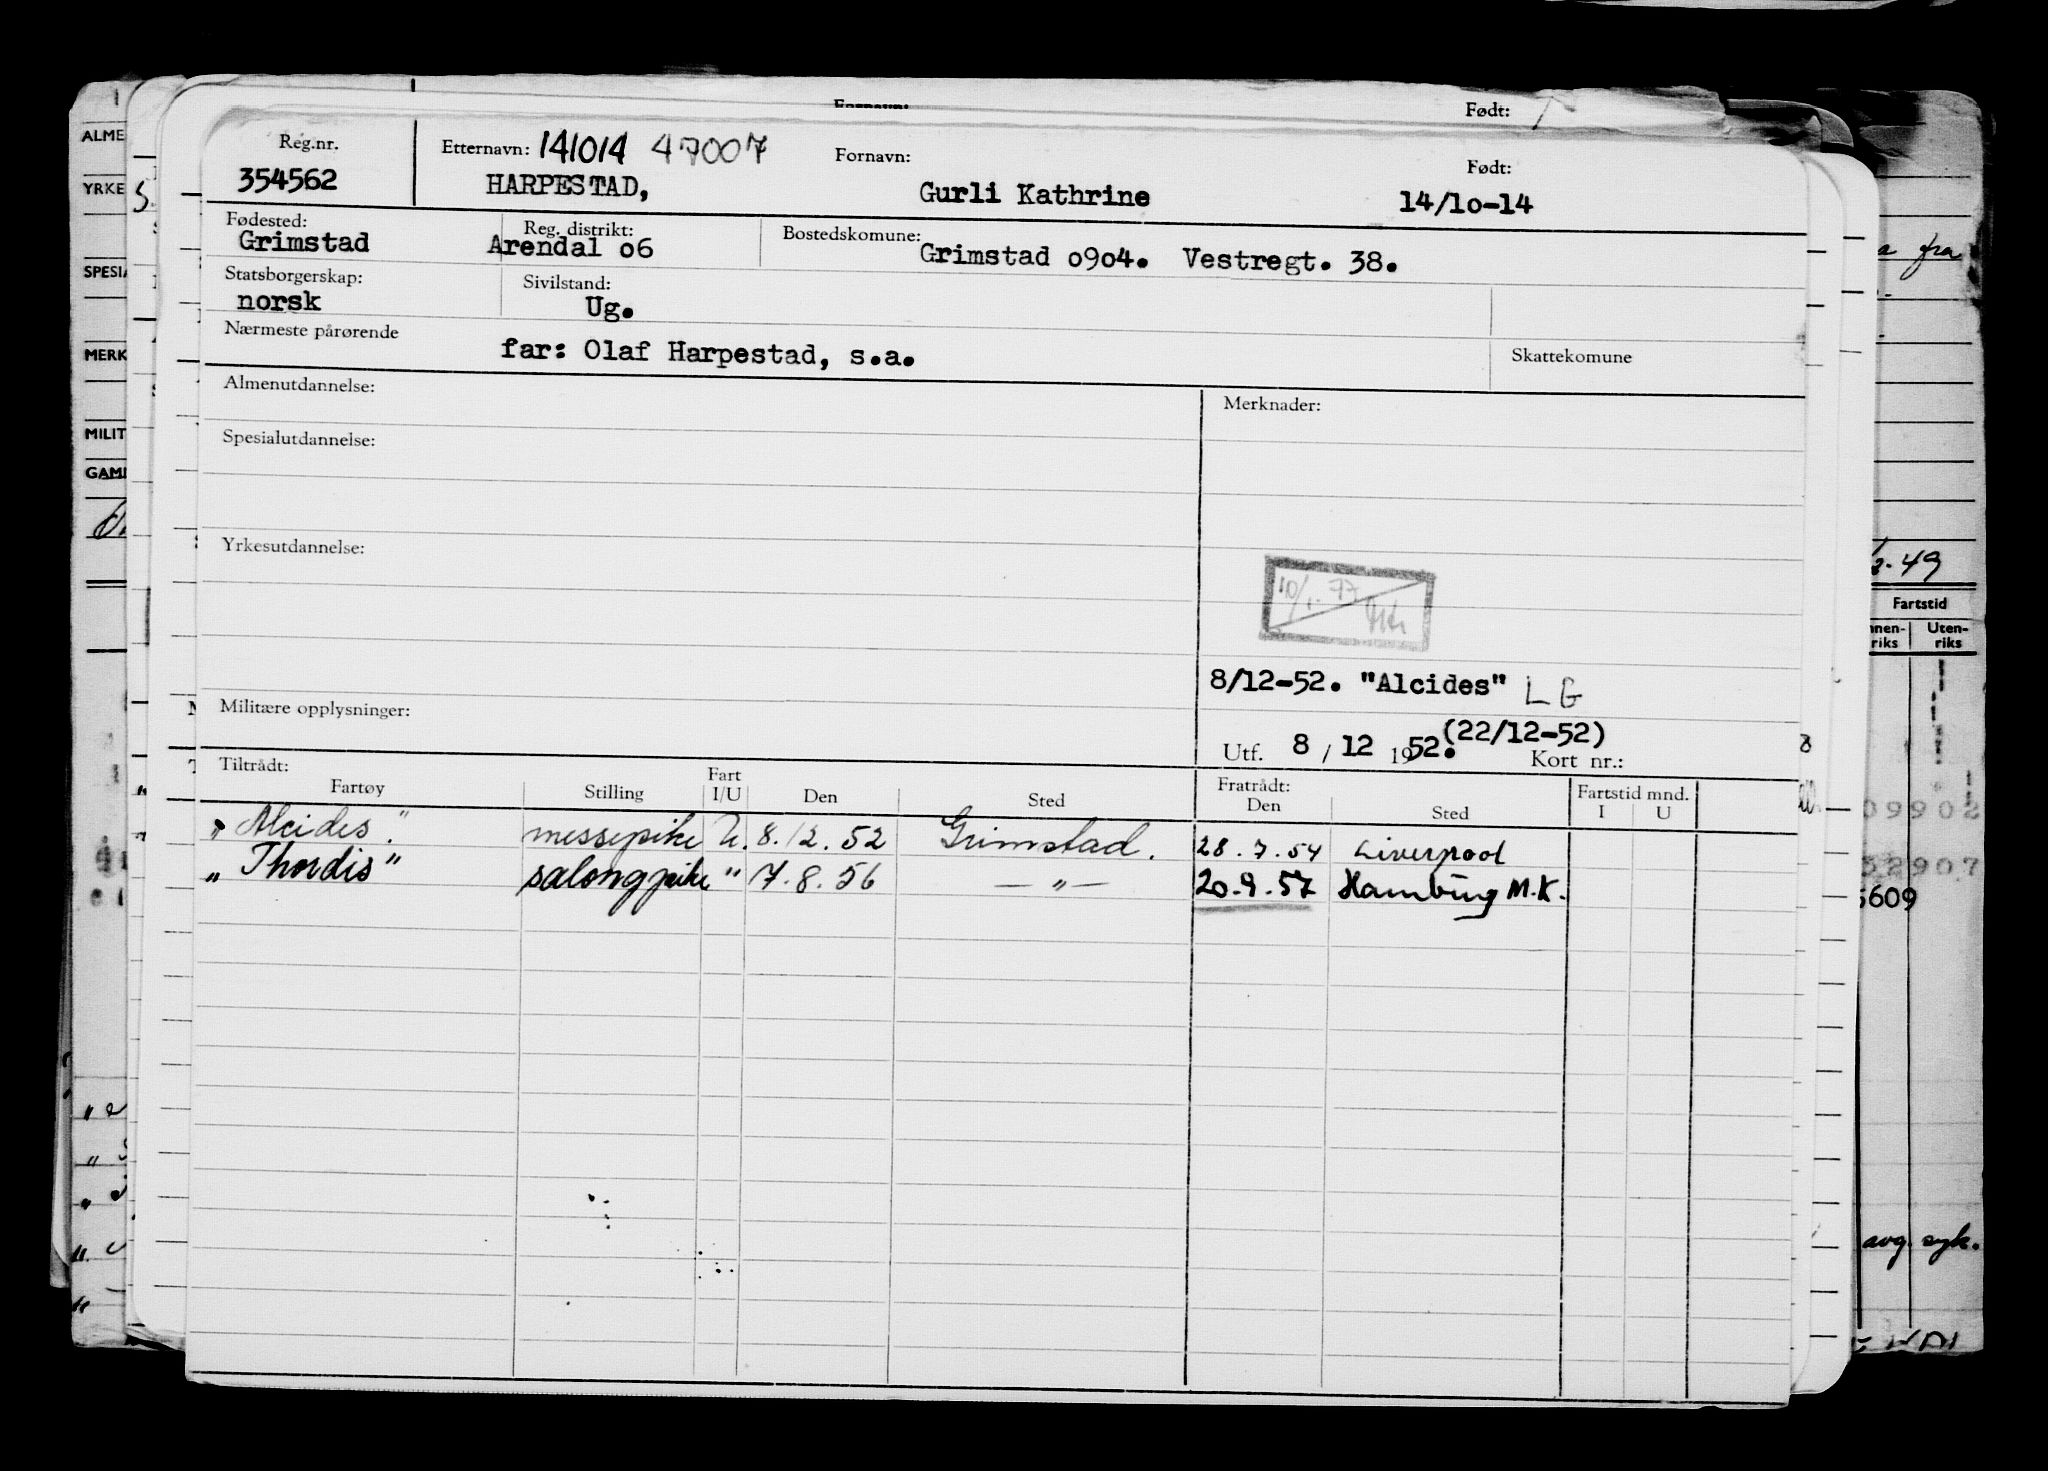 Født:
Reg.nr. Etternavn: 141014 47007 Fornavn: Født:
354562 HARPESTAD, Gurli Kathrine 14/10-14
Fødested: Reg. distrikt: Bostedskomune:
Grimstad Arendal o6 Grimstad o9o4. Vestregt. 38.
Statsborgerskap: Sivilstand:
norsk Ug.
Nærmeste pårørende Skattekomune
far: Olaf Harpestad, s.a.
Almenutdannelse: Merknader:
Spesialutdannelse:
Yrkesutdannelse:
10/1.77
8/12-52. "Alcides" LG
Militære opplysninger:
(22/12-52)
Utf. 8 / 12 1952. Kort nr.:
Tiltrådt: Fratrådt: Fartstid mnd.
Fartøy Stilling Fart I/U Den Sted Den Sted I U
"Alcides." messepike U. 8.12.52 Grimstad. 28.7.54 Liverpool
"Thordis" salongpike " 7.8.56 — " — 20.9.57 Hamburg M.K.
ALME
YRKE
SPESIA
MERK
MILIT
GAM
fra
49
Fartstid
nnen-riks Uten-riks
09902
52907
5609
avg. syk.